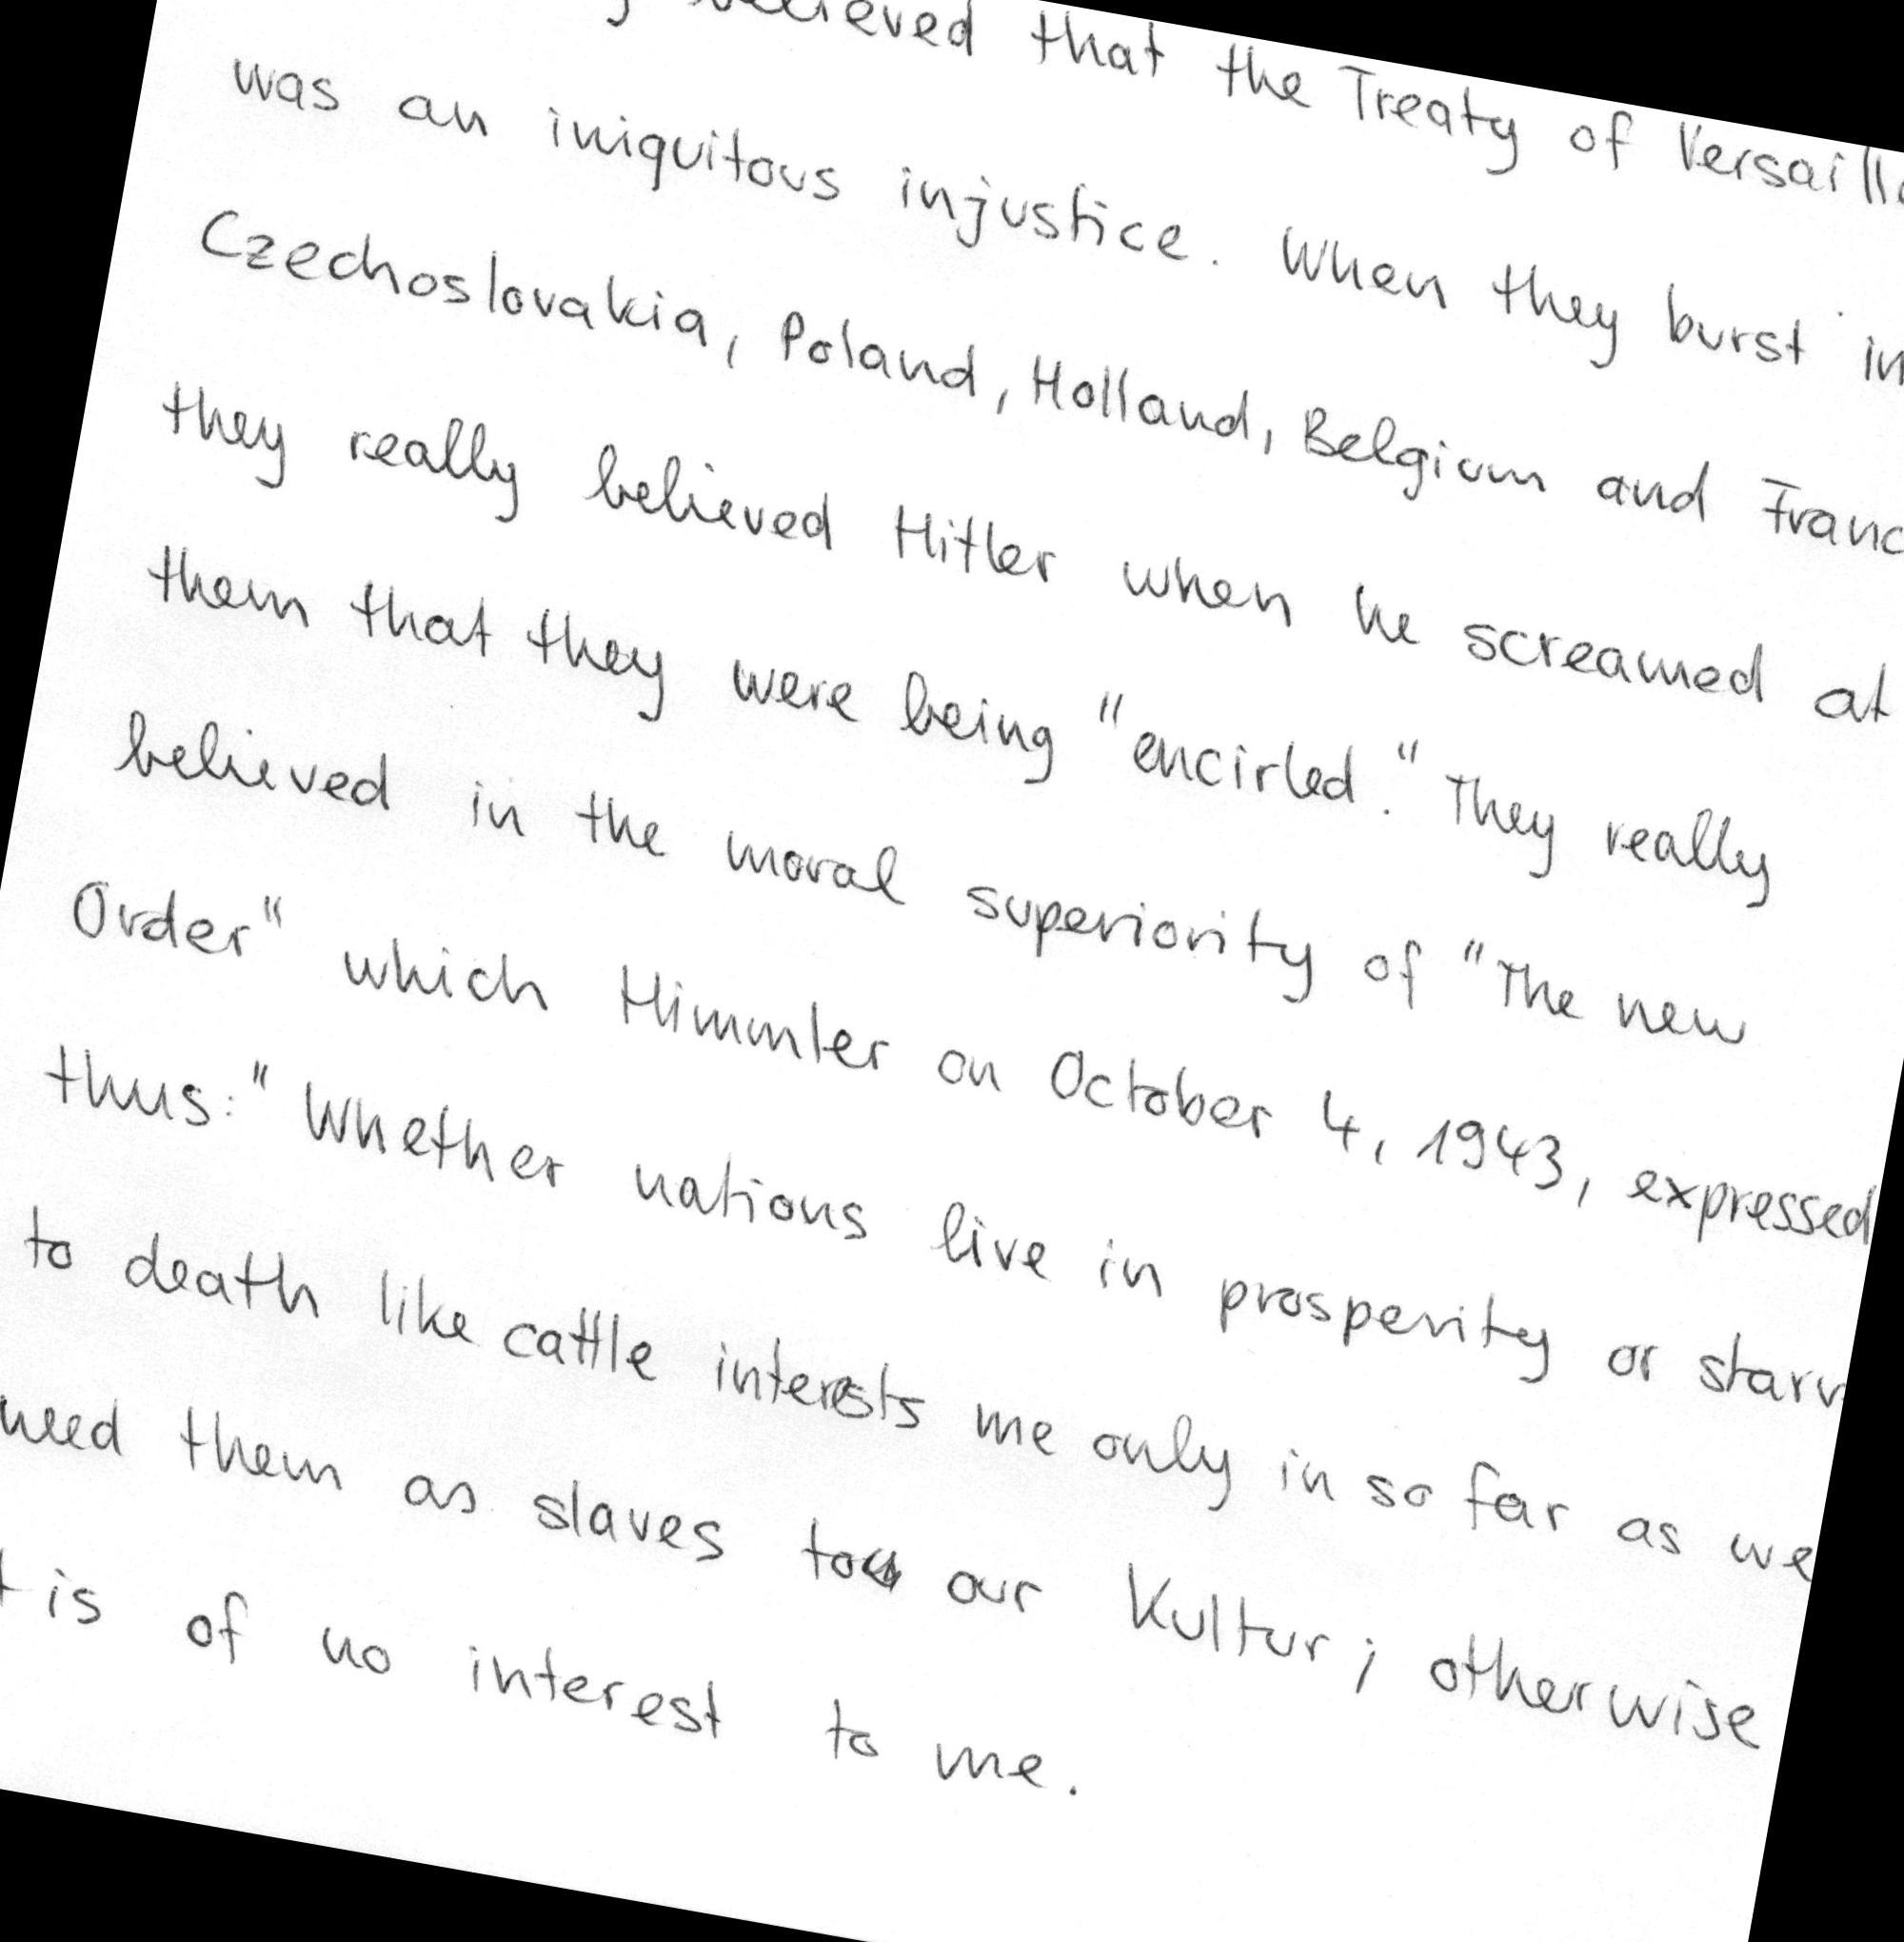 believed that the Treaty of
was an iniquitous injustice. When they burst
Czechoslovakia, Poland, Holland, Belgium and
they really believed Hitler when he screamed at
them that they were being "encirled." They really
believed in the moral superiority of "The new
Order" which Himmler on October 4, 1943, expressed
thus: "Whether nations live in prosperity or
to death like cattle interests me only in so far as we
need them as slaves to our Kultur; otherwise
is of no interest to me.